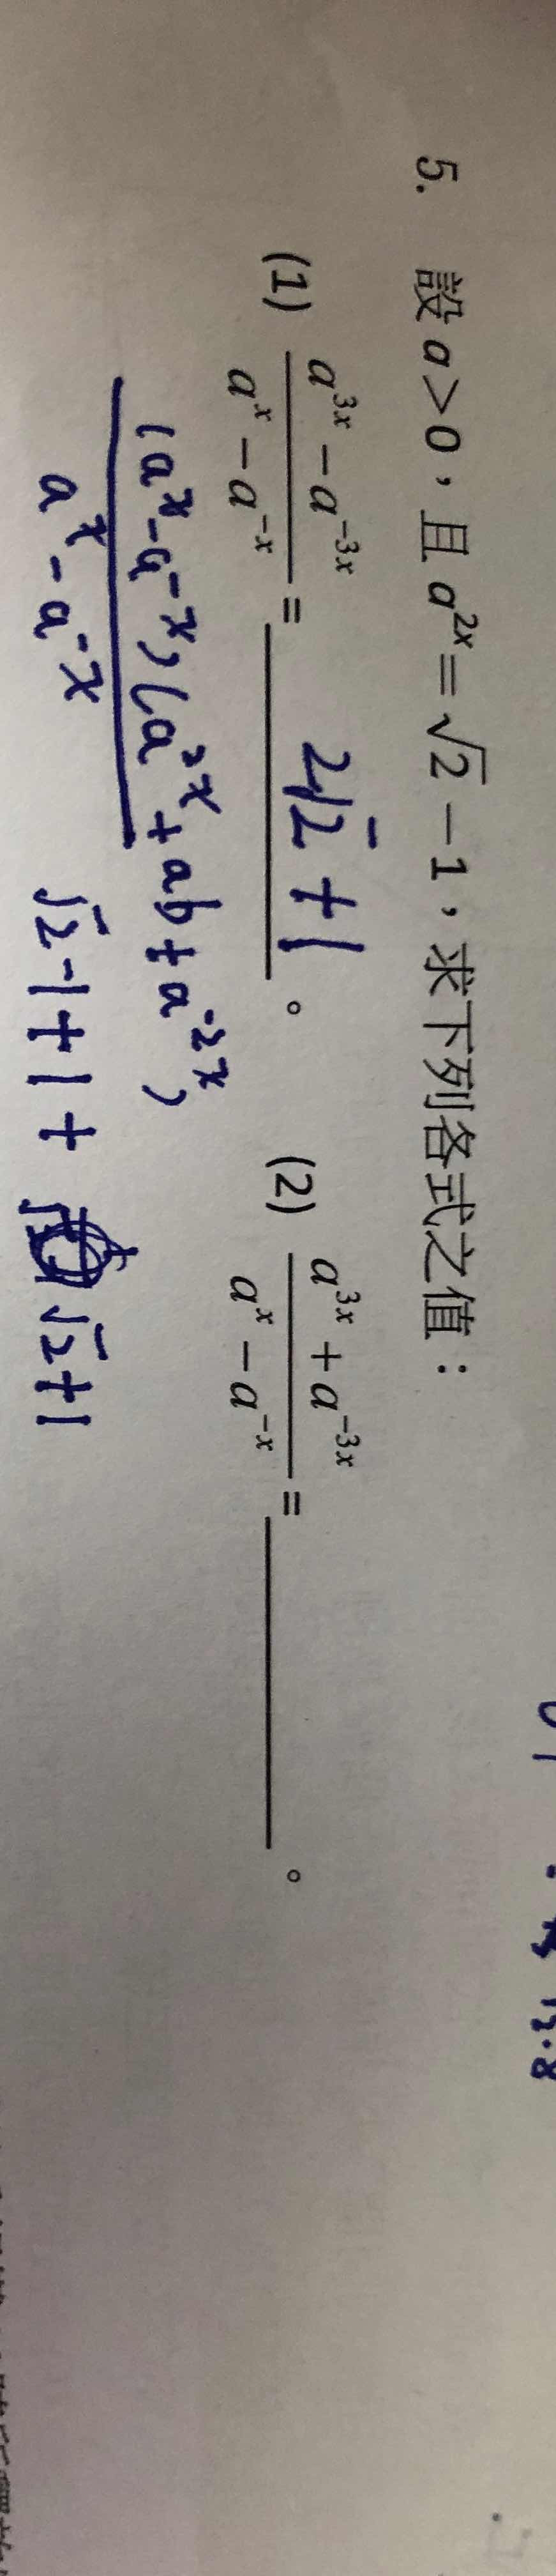 5. 設 a > 0，且 a^{2x} = √2 − 1，求下列各式之值：
(1) \frac{a^{3x} − a^{−3x}}{a^{x} − a^{−x}} = 2√2 + 1 。 (2) \frac{a^{3x} + a^{−3x}}{a^{x} − a^{−x}} = ______ 。
\frac{(a^{x} - a^{-x})(a^{2x} + ab + a^{-2x})}{a^{x} - a^{-x}}
√2 - 1 + 1 + √2 + 1